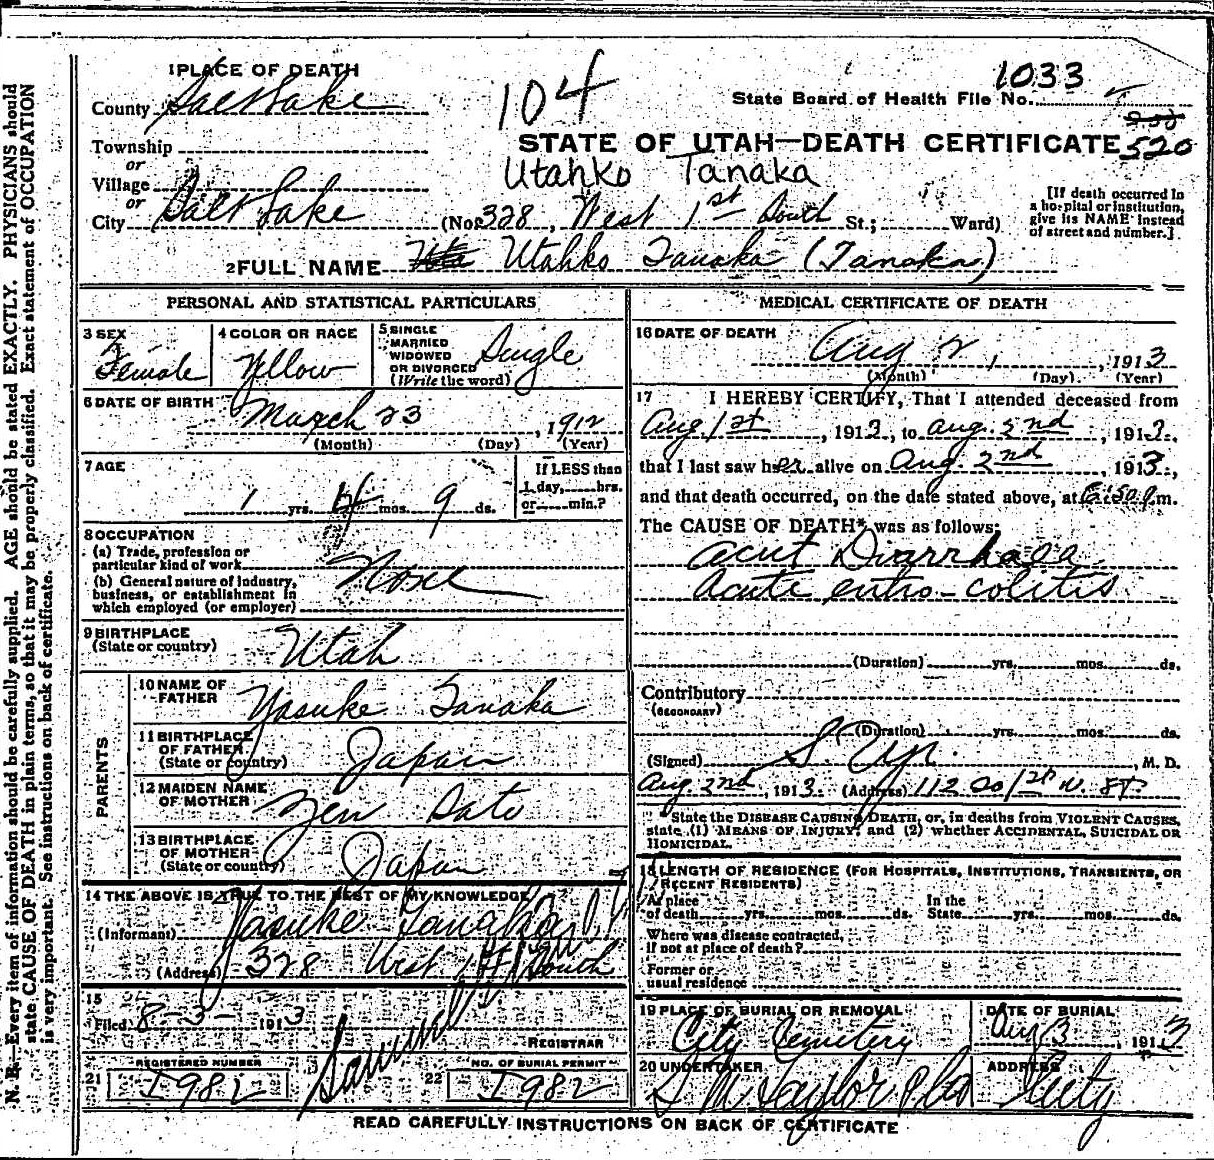 N. B.—Every item of information should be carefully supplied. AGE should be stated EXACTLY. PHYSICIANS should
state CAUSE OF DEATH in plain terms, so that it may be properly classified. Exact statement of OCCUPATION
is very important. See instructions on back of certificate.
1 PLACE OF DEATH
County Salt Lake
Township
or
Village
or
City Salt Lake
104
1033
State Board of Health File No.
STATE OF UTAH—DEATH CERTIFICATE 520
Utahko Tanaka
(No. 328, West 1st South St.; Ward)
[If death occurred in
a hospital or institution,
give its NAME instead
of street and number.]
2 FULL NAME Uta Utahko Tanaka (Tanaka)
PERSONAL AND STATISTICAL PARTICULARS
3 SEX
Female
4 COLOR OR RACE
Yellow
5 SINGLE
MARRIED
WIDOWED
OR DIVORCED
(Write the word)
Single
6 DATE OF BIRTH
March 23, 1912
(Month) (Day) (Year)
7 AGE
1 yrs. 4 mos. 9 ds.
If LESS than
1 day, hrs.
or min.?
8 OCCUPATION
(a) Trade, profession or
particular kind of work
(b) General nature of industry,
business, or establishment in
which employed (or employer)
None
9 BIRTHPLACE
(State or country)
Utah
PARENTS
10 NAME OF
FATHER
Yasuke Tanaka
11 BIRTHPLACE
OF FATHER
(State or country)
Japan
12 MAIDEN NAME
OF MOTHER
Zen Sato
13 BIRTHPLACE
OF MOTHER
(State or country)
Japan
14 THE ABOVE IS TRUE TO THE BEST OF MY KNOWLEDGE
(Informant) Yasuke Tanaka
(Address) 328 West 1st South
15
Filed 8-3- 1913
REGISTRAR
REGISTERED NUMBER
21 1982
NO. OF BURIAL PERMIT
22 1982
MEDICAL CERTIFICATE OF DEATH
16 DATE OF DEATH
Aug 2, 1913
(Month) (Day) (Year)
17 I HEREBY CERTIFY, That I attended deceased from
Aug 1st, 1913, to Aug. 2nd, 1913,
that I last saw her alive on Aug. 2nd, 1913,
and that death occurred, on the date stated above, at 6:50 p m.
The CAUSE OF DEATH* was as follows:
acut Diarrhaea
Acute entro-colitis
(Duration) yrs. mos. ds.
Contributory
(SECONDARY)
(Duration) yrs. mos. ds.
(Signed) M. D.
Aug. 2nd, 1913. (Address) 112 So 1st W. St
* State the DISEASE CAUSING DEATH, or, in deaths from VIOLENT CAUSES,
state (1) MEANS OF INJURY; and (2) whether ACCIDENTAL, SUICIDAL OR
HOMICIDAL.
18 LENGTH OF RESIDENCE (FOR HOSPITALS, INSTITUTIONS, TRANSIENTS, OR
RECENT RESIDENTS)
At place
of death yrs. mos. ds.
In the
State yrs. mos. ds.
Where was disease contracted,
if not at place of death?
Former or
usual residence
19 PLACE OF BURIAL OR REMOVAL
City Cemetery
DATE OF BURIAL
Aug 3, 1913
20 UNDERTAKER
S M Taylor
ADDRESS
City
READ CAREFULLY INSTRUCTIONS ON BACK OF CERTIFICATE